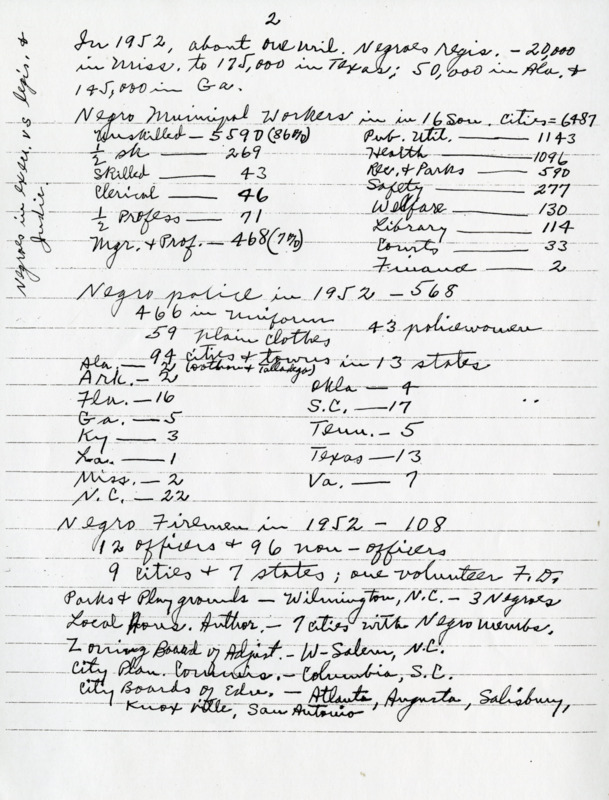 2
In 1952, about one mil. Negroes regis. - 20,000
in Miss. to 175,000 in Texas; 50,000 in Ala. &
145,000 in Ga.
Negroes in exec. vs legis. &
Judic.
Negro Municipal Workers in in 16 Sou. cities = 6487
Unskilled - 5590 (86%)
½ sk — 269
Skilled — 43
Clerical — 46
½ Profess — 71
Mgr. & Prof. — 468 (7%)
Pub. Util. — 1143
Health — 1096
Rec. & Parks — 590
Safety — 277
Welfare — 130
Library — 114
Courts — 33
Finance — 2
Negro police in 1952 - 568
466 in uniform
59 plain clothes 43 policewomen
94 cities & towns in 13 states
Ala. — 2 (Dothan & Talladega)
Ark. - 2
Fla. - 16
Ga. — 5
Ky — 3
La. — 1
Miss. - 2
N.C. - 22
Okla — 4
S.C. — 17
Tenn. - 5
Texas — 13
Va. — 7
Negro Firemen in 1952 - 108
12 officers & 96 non-officers
9 cities & 7 states; one volunteer F.D.
Parks & Playgrounds — Wilmington, N.C. - 3 Negroes
Local Hous. Author. - 7 cities with Negro membs.
Zoning Board of Adjust. - W-Salem, N.C.
City Plan. Commers. - Columbia, S.C.
City Boards of Educ. — Atlanta, Augusta, Salisbury,
Knoxville, San Antonio